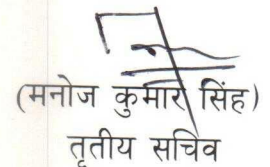 (मनोज कुमार सिंह)
तृतीय सचिव